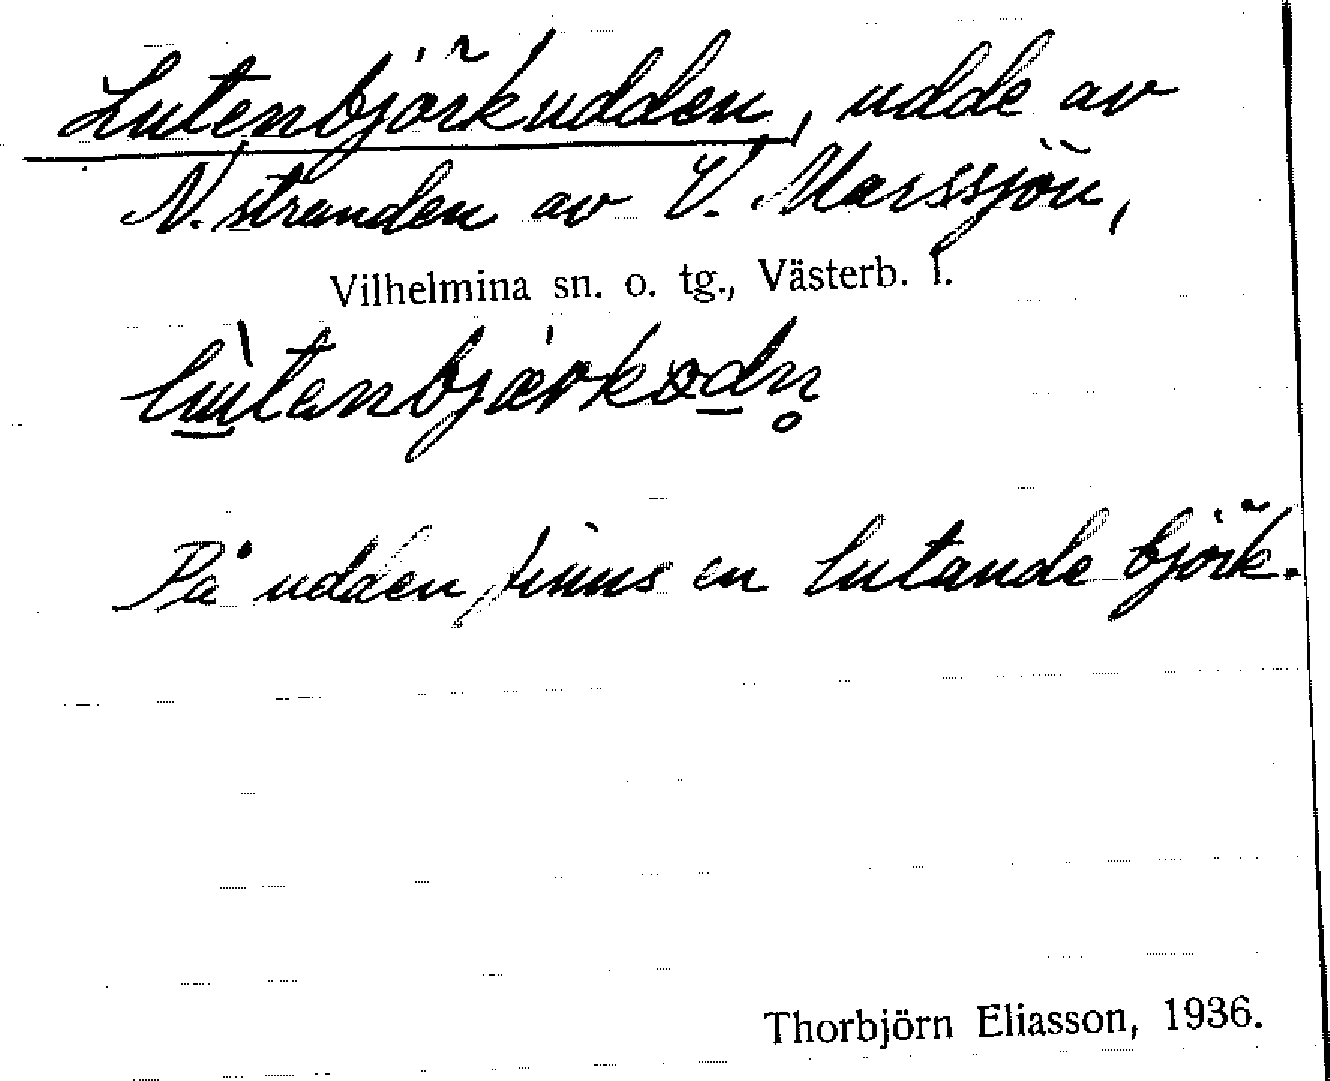 Lutenbjörkudden, udde av
N. stranden av V. Marssjön,
Vilhelmina sn. o. tg., Västerb. l.
lùtanbjærkodn̥
På udden finns en lutande björk.
Thorbjörn Eliasson, 1936.